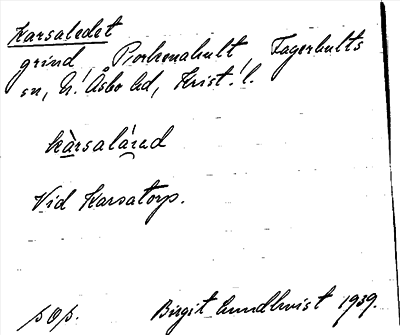 Karsaledet
grind, Porkenahult, Fagerhults
sn, N. Åsbo hd, Krist. l.
kàrsalá̱rad
Vid Karsatorp.
p o p. Birgit Lundkvist 1939.